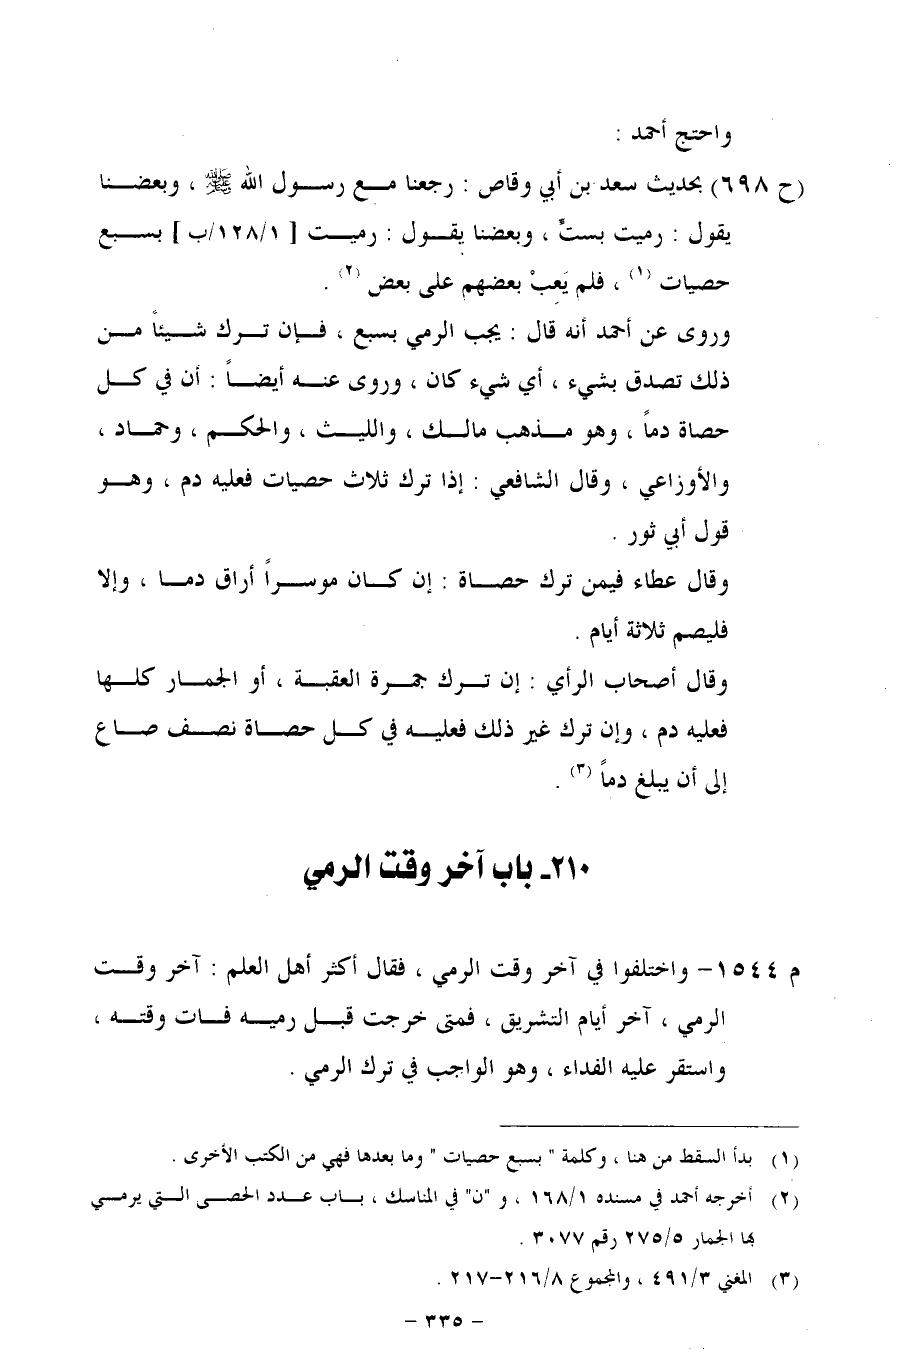 واحتج أحمد :
(ح ٦٩٨) بحديث سعد بن أبي وقاص : رجعنا مع رسول الله ﷺ ، وبعضنا
يقول : رميت بستٍّ ، وبعضنا يقول : رميت [ ١٢٨/١/ب ] بسبع
حصيات (١) ، فلم يَعِبْ بعضهم على بعض (٢) .
وروى عن أحمد أنه قال : يجب الرمي بسبع ، فإن ترك شيئاً من
ذلك تصدق بشيء ، أي شيء كان ، وروى عنه أيضاً : أن في كل
حصاة دماً ، وهو مذهب مالك ، والليث ، والحكم ، وحماد ،
والأوزاعي ، وقال الشافعي : إذا ترك ثلاث حصيات فعليه دم ، وهو
قول أبي ثور .
وقال عطاء فيمن ترك حصاة : إن كان موسراً أراق دما ، وإلا
فليصم ثلاثة أيام .
وقال أصحاب الرأي : إن ترك جمرة العقبة ، أو الجمار كلها
فعليه دم ، وإن ترك غير ذلك فعليه في كل حصاة نصف صاع
إلى أن يبلغ دماً (٣) .
٢١٠- باب آخر وقت الرمي
م ١٥٤٤- واختلفوا في آخر وقت الرمي ، فقال أكثر أهل العلم : آخر وقت
الرمي ، آخر أيام التشريق ، فمتى خرجت قبل رميه فات وقته ،
واستقر عليه الفداء ، وهو الواجب في ترك الرمي .
(١) بدأ السقط من هنا ، وكلمة " بسبع حصيات " وما بعدها فهي من الكتب الأخرى .
(٢) أخرجه أحمد في مسنده ١٦٨/١ ، و "ن" في المناسك ، باب عدد الحصى التي يرمي
بها الجمار ٢٧٥/٥ رقم ٣٠٧٧ .
(٣) المغني ٤٩١/٣ ، والمجموع ٢١٦/٨-٢١٧ .
- ٣٣٥ -